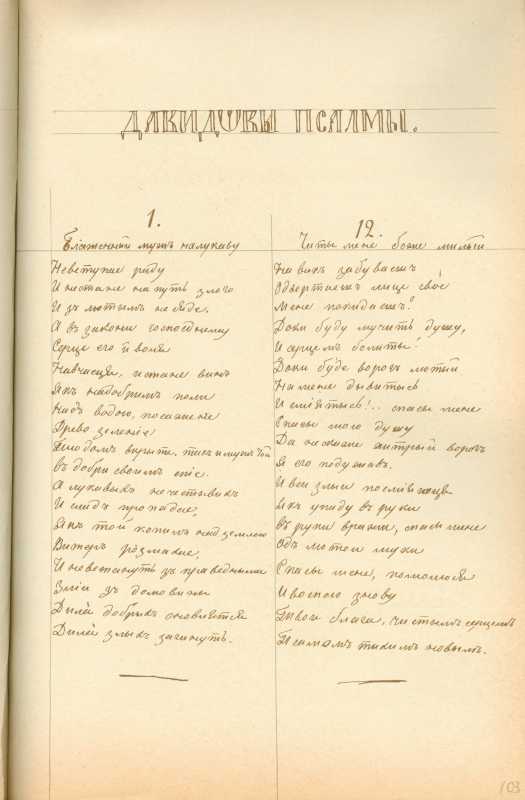 ДАВИДѠВЫ ПСАЛМЫ.
1.
Блаженный мужъ на лукаву
Невступае раду
И нестане на путь злого
И зъ лютымъ не сяде.
А въ закони господнему
Серце его й воля
Навчаеця, и стане винъ
Якъ надобримъ поли
Надъ водою, посажене
Древо зеление
Плодомъ вкрыте. такъ и мужъ той
Въ добри своимъ спіе.
А лукавыхъ нечестывыхъ
И слидъ пропадае,
Якъ той попилъ надъ землею
Витеръ розмахае,
И невстануть зъ праведными
Зліи зъ домовыны
Дила добрыхъ оновлятся
Дила злыхъ загинуть.
12.
Чи ты мене боже милый
На викъ забуваешъ
Одвертаешъ лице своє
Мене покидаешъ?
Доки буду мучить душу,
И серцемъ болиты?
Доки буде ворогъ лютый
На мене дывитысь
И сміятысь!.. спасы мене
Спасы мою душу
Да не скаже хитрый ворогъ
Я его подужавъ.
И вси злыи посліюця
Якъ упаду въ руки
Въ руки вражи, спасы мене
Одъ лютои муки
Спасы мене, помолюся
И воспою знову
Твои блага, чистымъ серцемъ
Псалмомъ тихимъ новымъ.
103